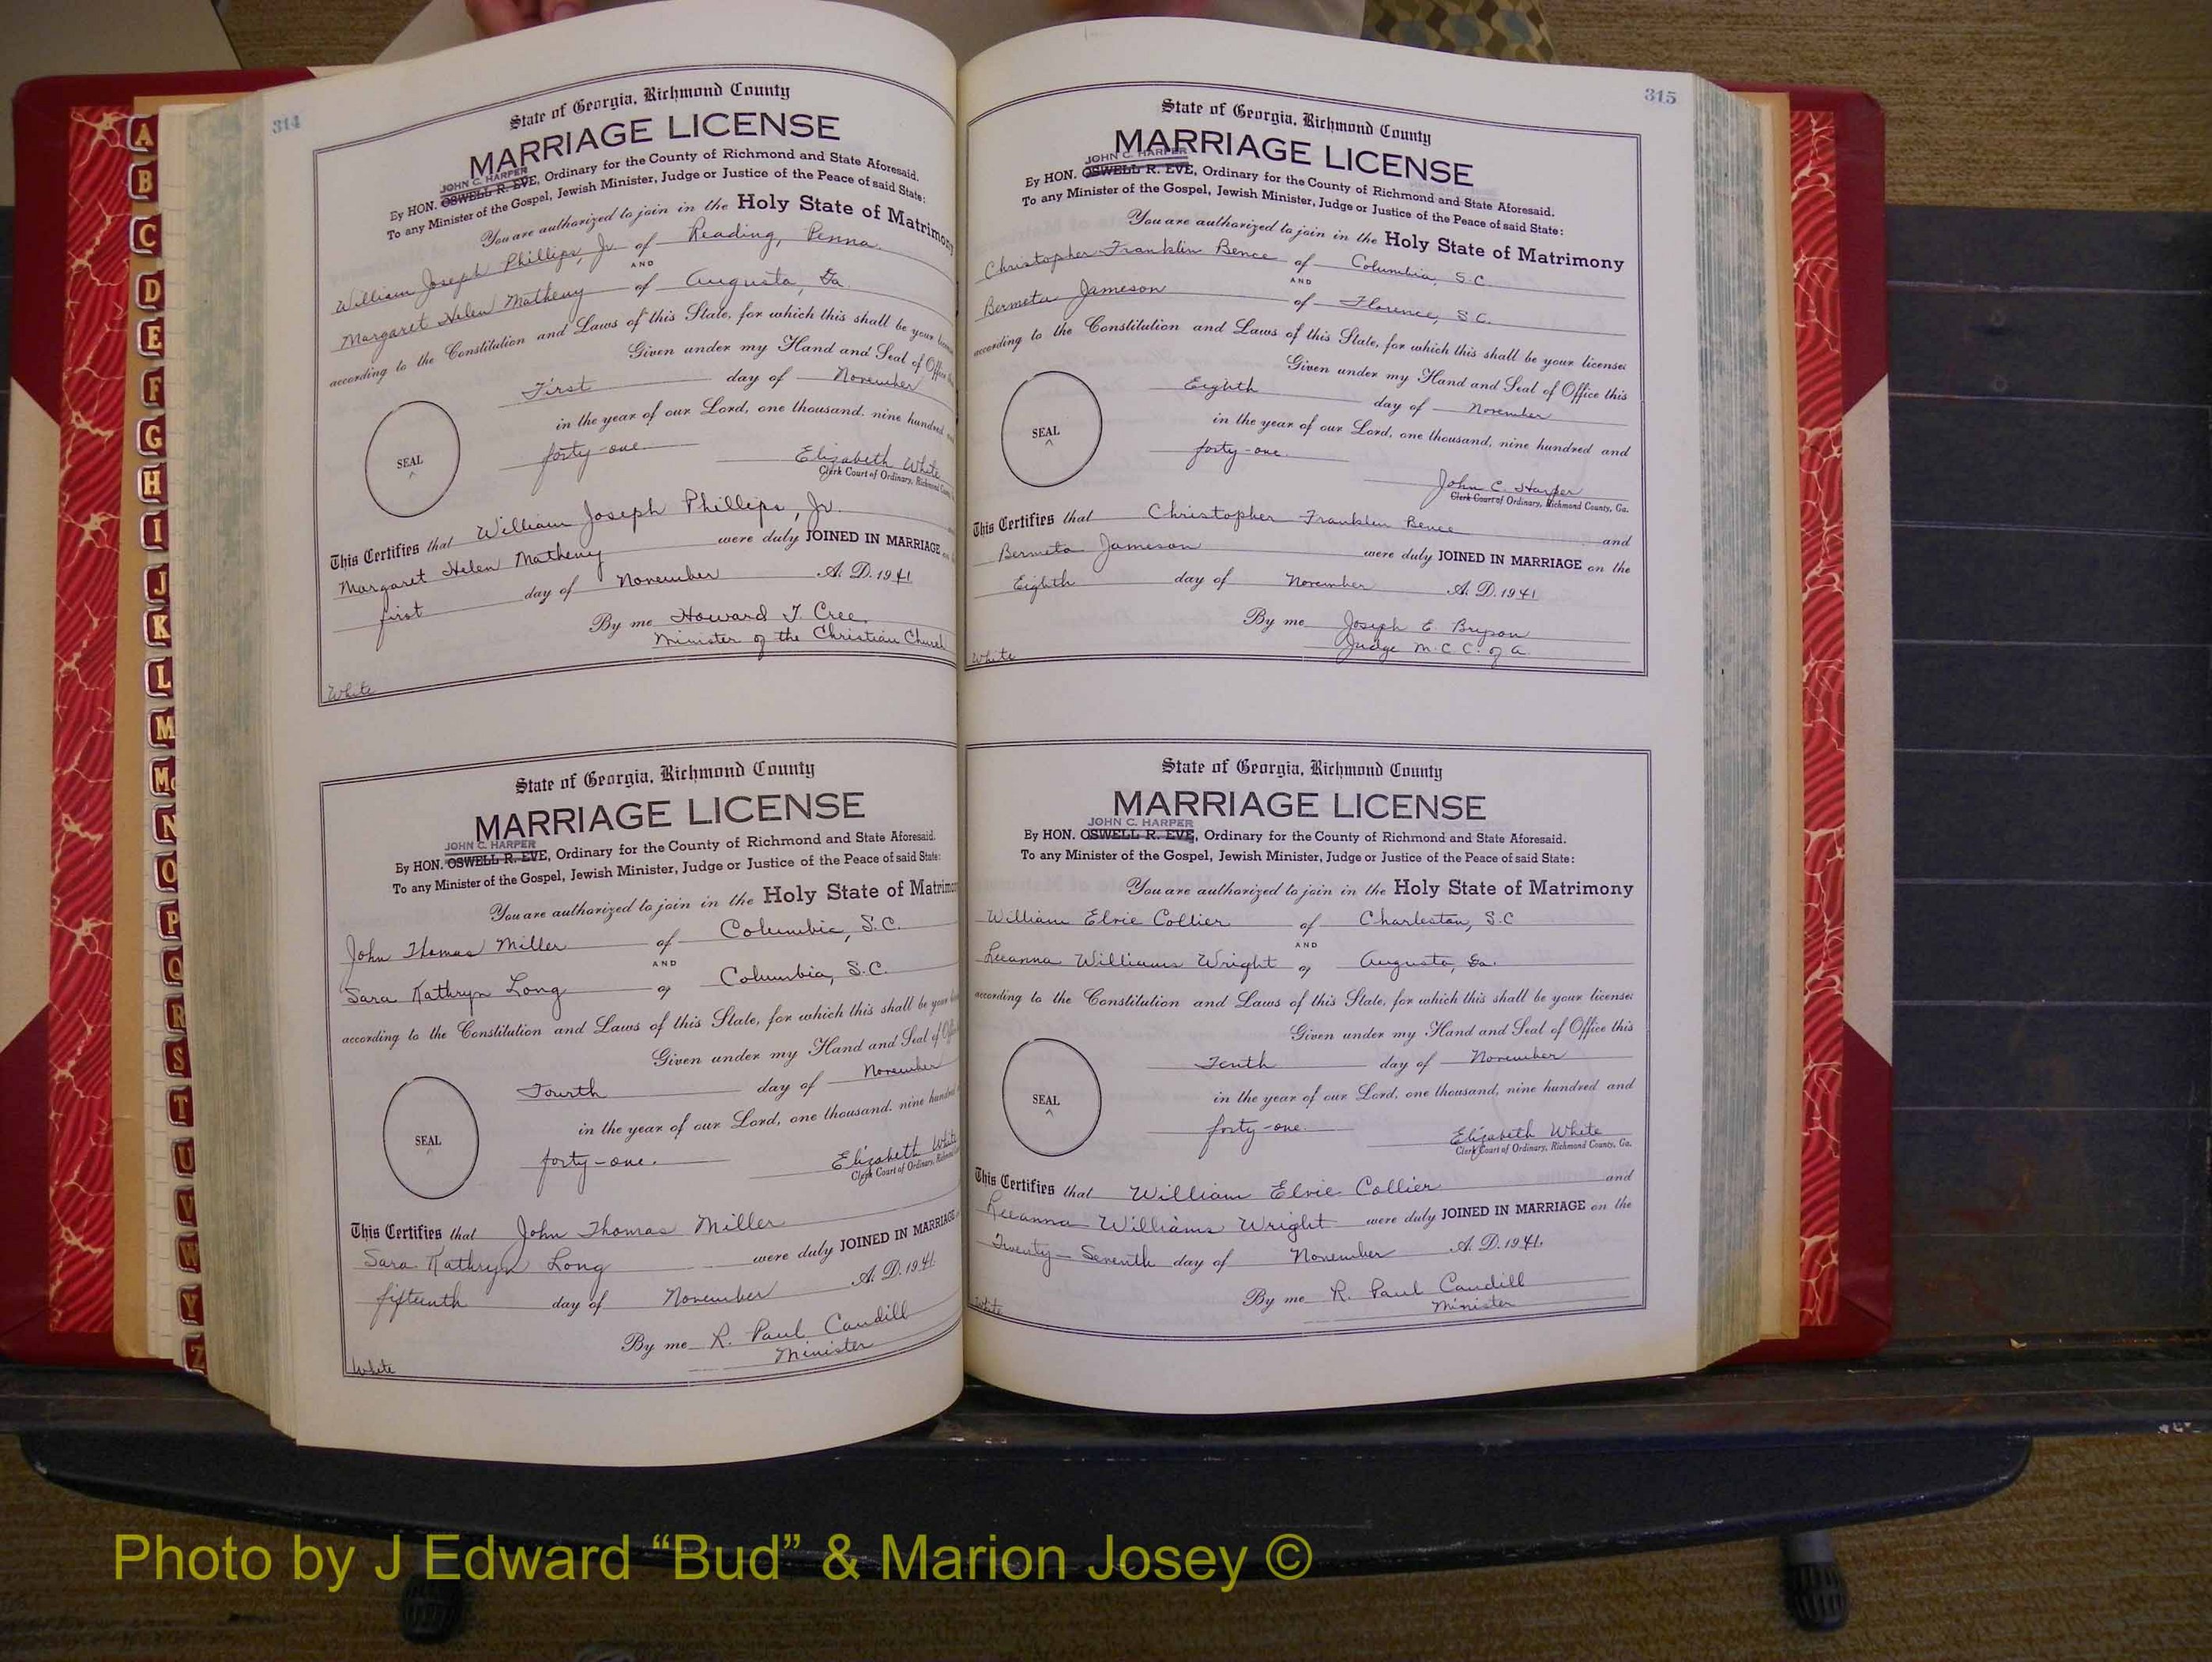 314
State of Georgia, Richmond County
MARRIAGE LICENSE
JOHN C. HARPER
By HON. OSWELL R. EVE, Ordinary for the County of Richmond and State Aforesaid.
To any Minister of the Gospel, Jewish Minister, Judge or Justice of the Peace of said State:
You are authorized to join in the Holy State of Matrimony
William Joseph Phillips, Jr. of Reading, Penna.
AND
Margaret Helen Matheny of Augusta, Ga.
according to the Constitution and Laws of this State, for which this shall be your
Given under my Hand and Seal of Office
First day of November
in the year of our Lord, one thousand, nine hundred
forty-one.
SEAL
Elizabeth White
Clerk Court of Ordinary, Richmond
This Certifies that William Joseph Phillips, Jr.
Margaret Helen Matheny were duly JOINED IN MARRIAGE
first day of November A. D. 1941
By me Howard T. Cree.
Minister of the Christian Church
White
State of Georgia, Richmond County
MARRIAGE LICENSE
JOHN C. HARPER
By HON. OSWELL R. EVE, Ordinary for the County of Richmond and State Aforesaid.
To any Minister of the Gospel, Jewish Minister, Judge or Justice of the Peace of said State:
You are authorized to join in the Holy State of Matrimony
John Thomas Miller of Columbia, S.C.
AND
Sara Kathryn Long of Columbia, S.C.
according to the Constitution and Laws of this State, for which this shall be your
Given under my Hand and Seal of
Fourth day of November
in the year of our Lord, one thousand, nine hundred
forty-one.
SEAL
Elizabeth White
Clerk Court of Ordinary,
This Certifies that John Thomas Miller
Sara Kathryn Long were duly JOINED IN MARRIAGE
fifteenth day of November A. D. 1941.
By me R. Paul Caudill
Minister
White
315
State of Georgia, Richmond County
MARRIAGE LICENSE
JOHN C. HARPER
By HON. OSWELL R. EVE, Ordinary for the County of Richmond and State Aforesaid.
To any Minister of the Gospel, Jewish Minister, Judge or Justice of the Peace of said State:
You are authorized to join in the Holy State of Matrimony
Christopher Franklin Bence of Columbia, S.C.
AND
Bermeta Jameson of Florence, S.C.
according to the Constitution and Laws of this State, for which this shall be your license:
Given under my Hand and Seal of Office this
Eighth day of November
in the year of our Lord, one thousand, nine hundred and
forty-one.
SEAL
John C. Harper
Clerk Court of Ordinary, Richmond County, Ga.
This Certifies that Christopher Franklin Bence and
Bermeta Jameson were duly JOINED IN MARRIAGE on the
Eighth day of November A. D. 1941
By me Joseph E. Bryson
Judge M.C.C. of A.
White
State of Georgia, Richmond County
MARRIAGE LICENSE
JOHN C. HARPER
By HON. OSWELL R. EVE, Ordinary for the County of Richmond and State Aforesaid.
To any Minister of the Gospel, Jewish Minister, Judge or Justice of the Peace of said State:
You are authorized to join in the Holy State of Matrimony
William Elvie Collier of Charleston, S.C
AND
Leeanna Williams Wright of Augusta, Ga.
according to the Constitution and Laws of this State, for which this shall be your license:
Given under my Hand and Seal of Office this
Tenth day of November
in the year of our Lord, one thousand, nine hundred and
forty-one.
SEAL
Elizabeth White
Clerk Court of Ordinary, Richmond County, Ga.
This Certifies that William Elvie Collier and
Leeanna Williams Wright were duly JOINED IN MARRIAGE on the
Twenty-Seventh day of November A. D. 1941.
By me R. Paul Caudill
Minister
White
A
B
C
D
E
F
G
H
I
J
K
L
M
Mc
N
O
P
Q
R
S
T
U
V
W
Y
Z
Photo by J Edward “Bud” & Marion Josey ©